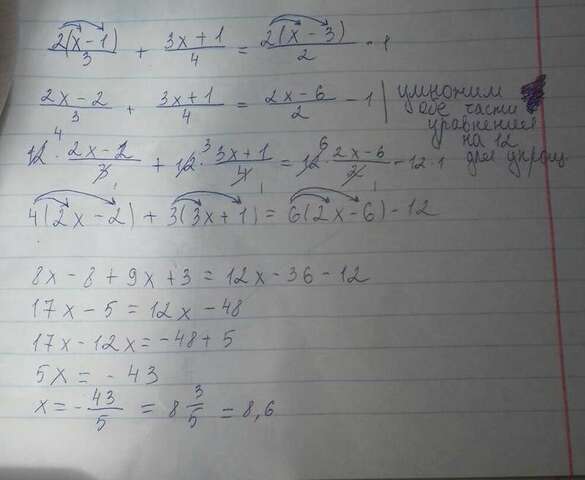 2(x-1)/3 + 3x+1/4 = 2(x-3)/2 - 1
2x-2/3 + 3x+1/4 = 2x-6/2 - 1 | умножим
обе части
уравнения
на 12
для упрощ.
12⁴ · 2x-2/3₁ + 12³ · 3x+1/4₁ = 12⁶ · 2x-6/2₁ - 12·1
4(2x-2) + 3(3x+1) = 6(2x-6) - 12
8x-8+9x+3 = 12x-36-12
17x-5 = 12x-48
17x-12x = -48+5
5x = -43
x = -43/5 = 8 3/5 = 8,6